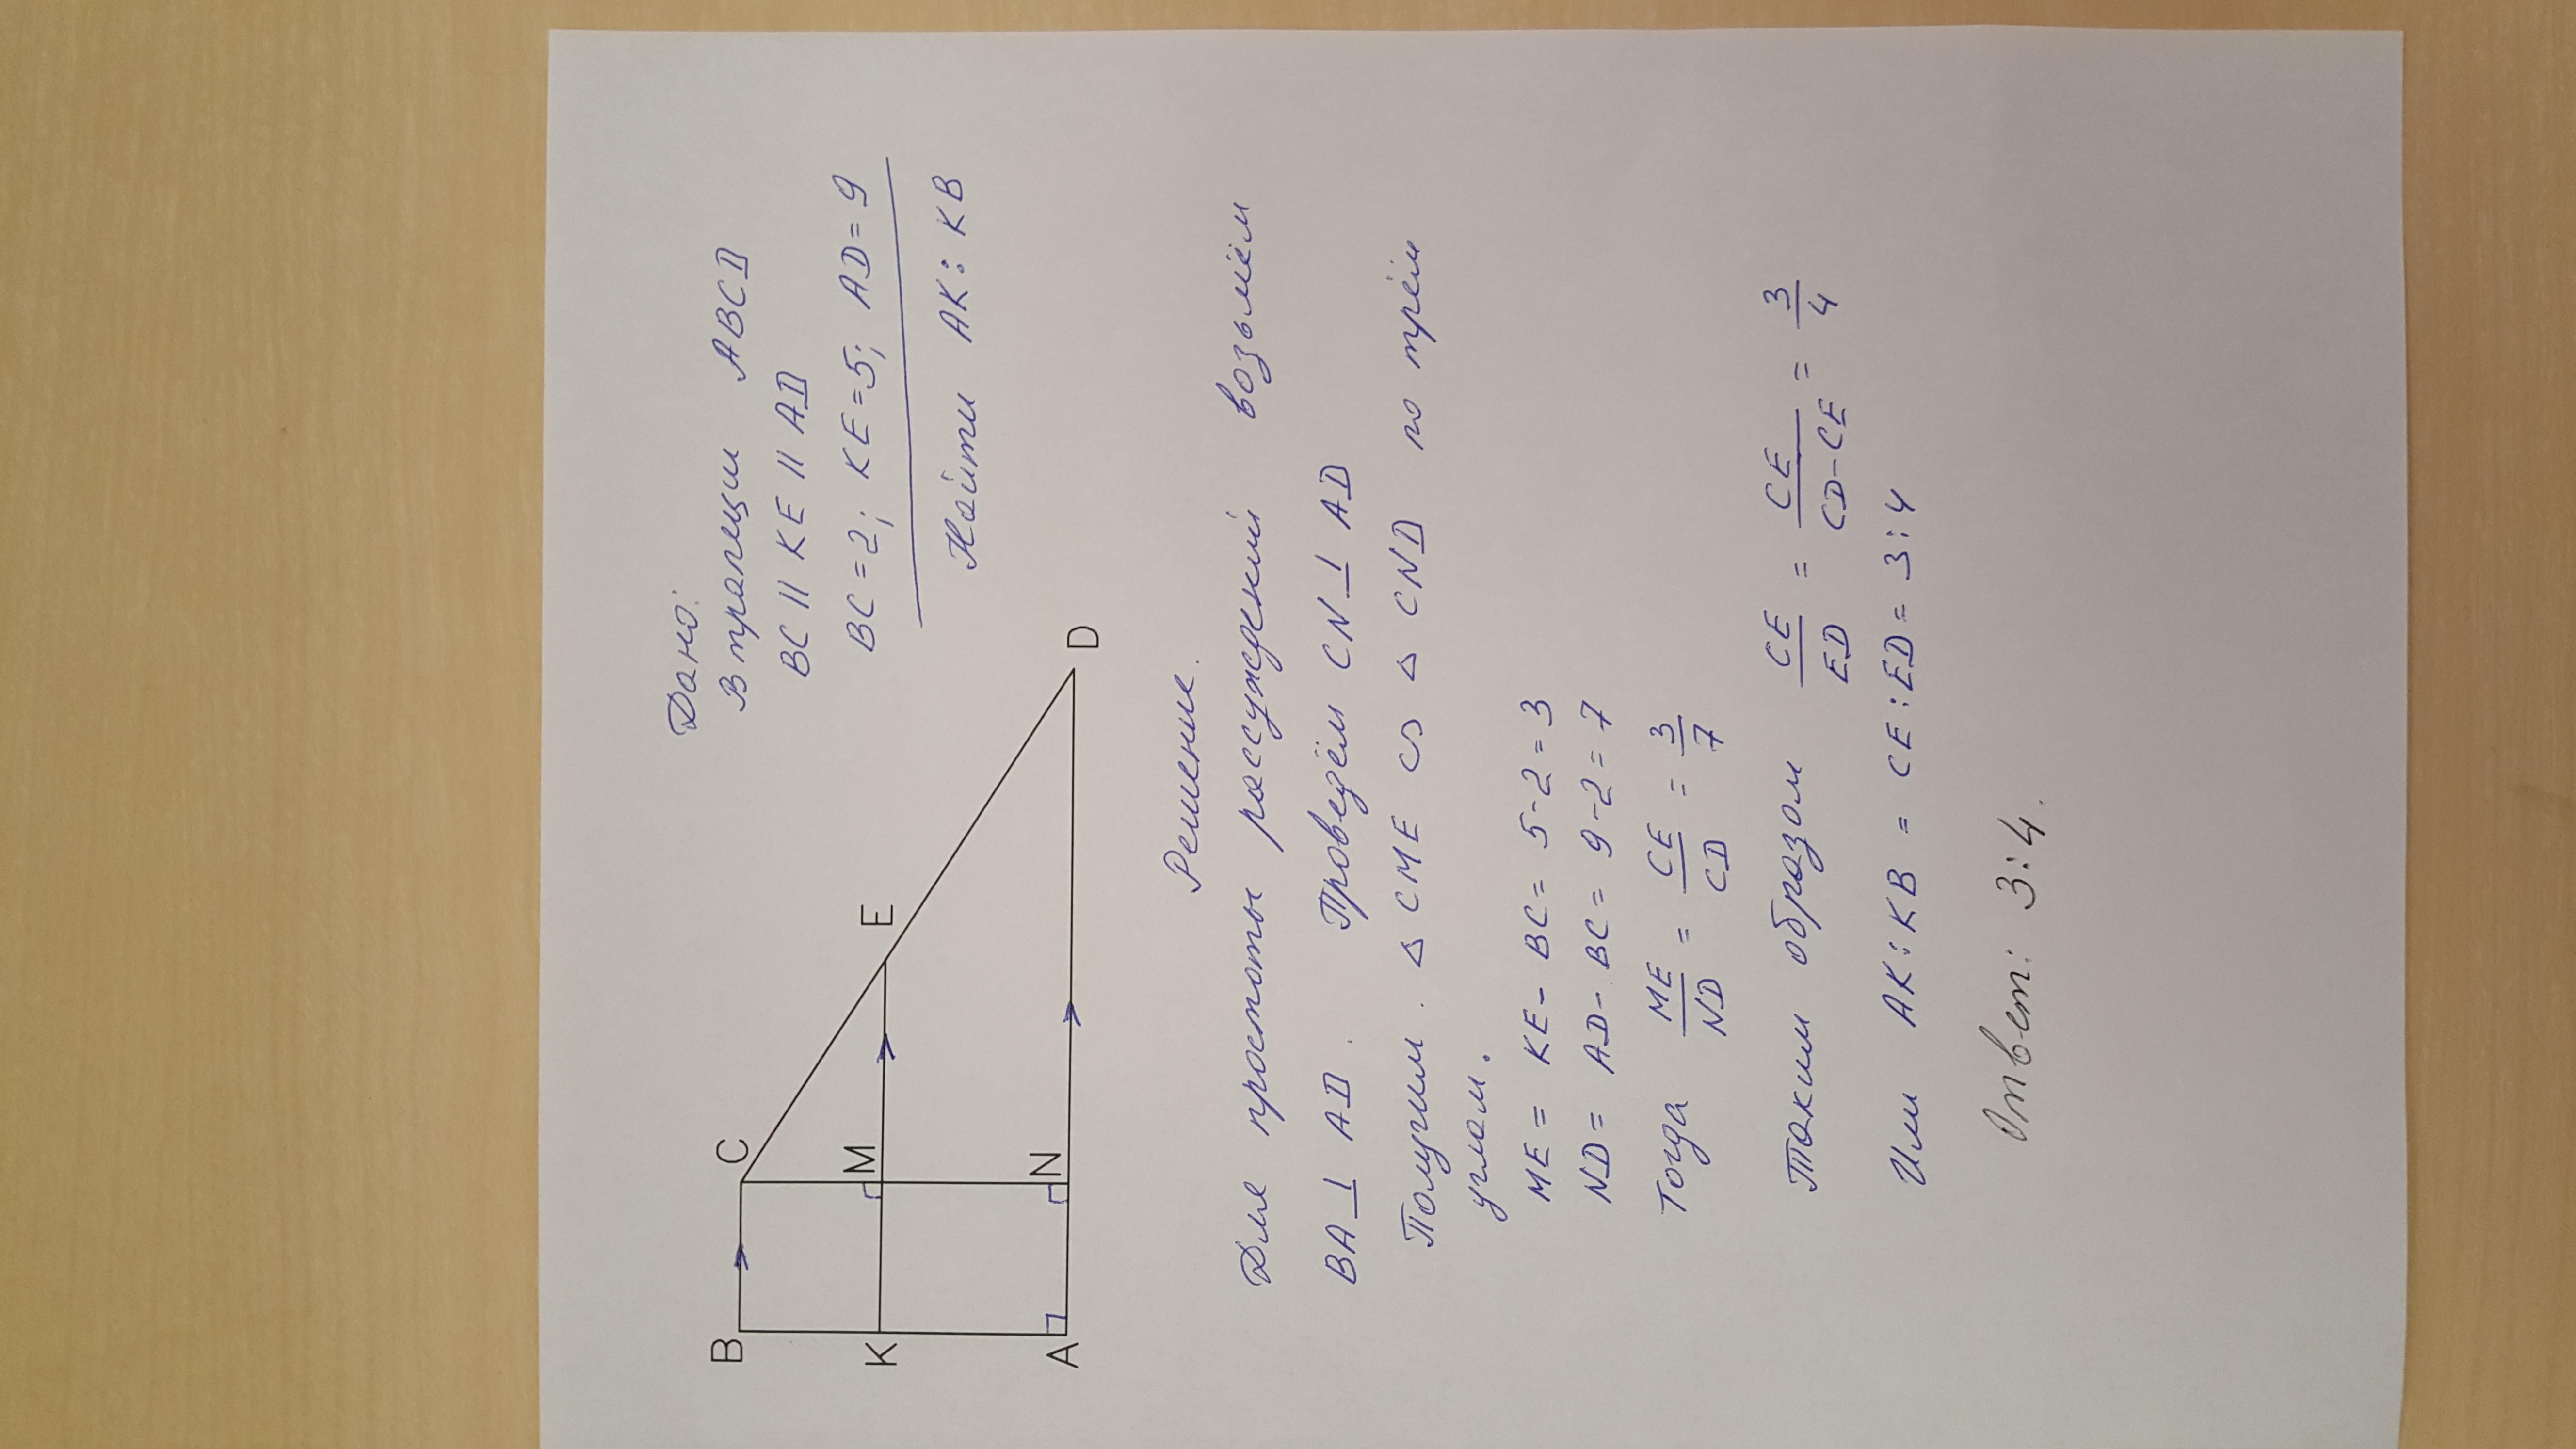 B
C
K
M
E
A
N
D
Дано:
В трапеции ABCD
BC || KE || AD
BC = 2; KE = 5; AD = 9
Найти AK : KB
Решение.
Для простоты рассуждений возьмём
BA ⊥ AD. Проведём CN ⊥ AD
Получим. △ CME ∽ △ CND по трём
углам.
ME = KE - BC = 5-2 = 3
ND = AD - BC = 9-2 = 7
Тогда ME/ND = CE/CD = 3/7
Таким образом CE/ED = CE/CD-CE = 3/4
Или AK : KB = CE : ED = 3 : 4
Ответ: 3:4.